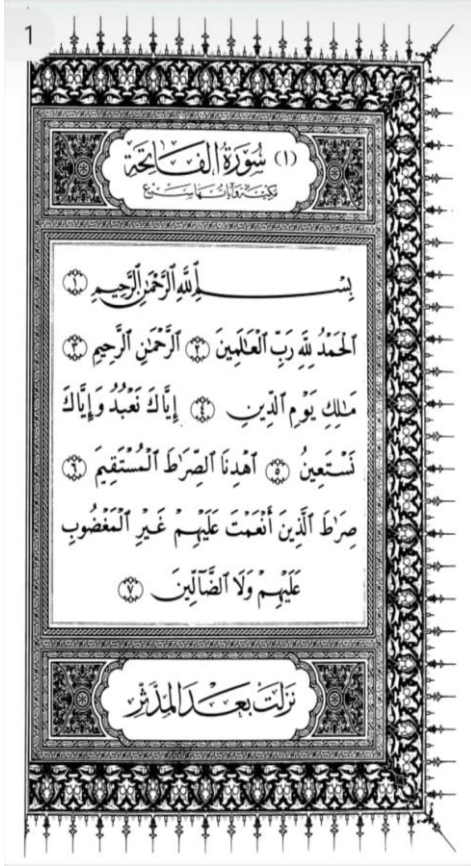 1
(١) سُورَةُ الفَاتِحَةِ
مَكِّيَّة وَآيَاتُهَا سَبْع
بِسْمِ ٱللَّهِ ٱلرَّحْمَٰنِ ٱلرَّحِيمِ ١
ٱلْحَمْدُ لِلَّهِ رَبِّ ٱلْعَٰلَمِينَ ٢ ٱلرَّحْمَٰنِ ٱلرَّحِيمِ ٣
مَٰلِكِ يَوْمِ ٱلدِّينِ ٤ إِيَّاكَ نَعْبُدُ وَإِيَّاكَ
نَسْتَعِينُ ٥ ٱهْدِنَا ٱلصِّرَٰطَ ٱلْمُسْتَقِيمَ ٦
صِرَٰطَ ٱلَّذِينَ أَنْعَمْتَ عَلَيْهِمْ غَيْرِ ٱلْمَغْضُوبِ
عَلَيْهِمْ وَلَا ٱلضَّآلِّينَ ٧
نَزَلَتْ بَعْدَ المُدَّثِّرِ